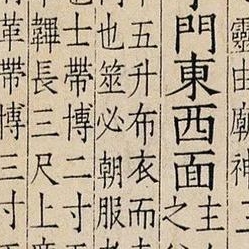 靈由廟神
門東西面
主
之
五升布衣而
也筮必朝服
士帶博二寸
韠長三尺上
革帶博三寸